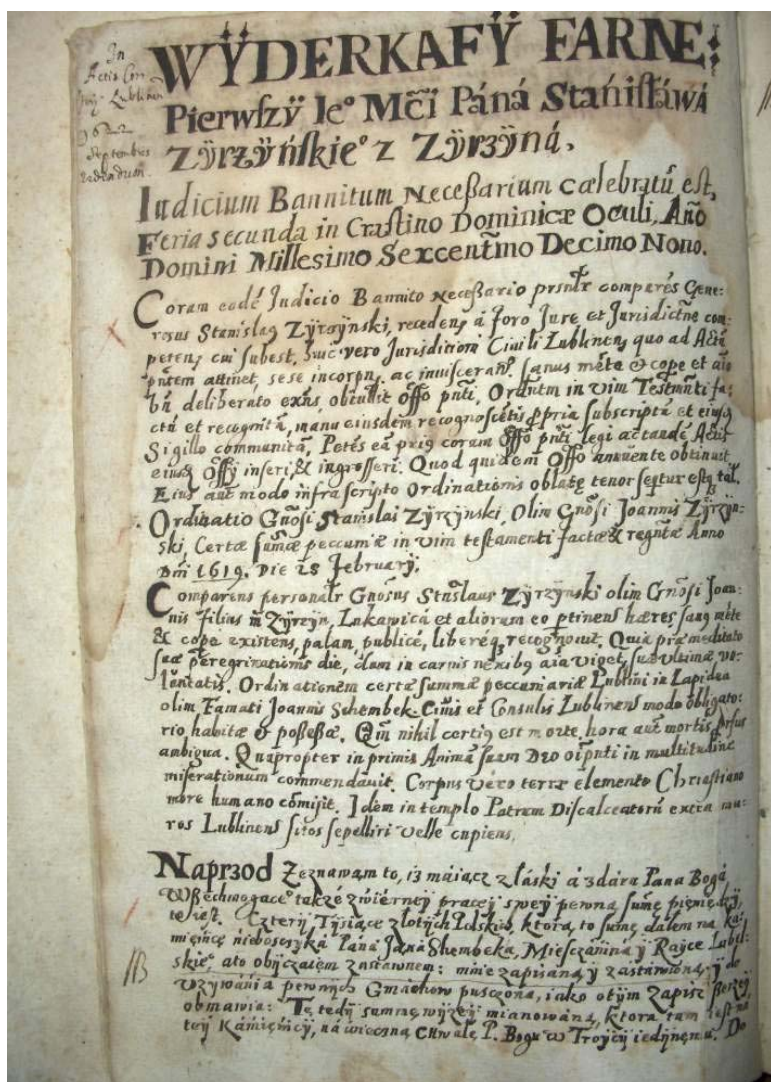 In
Actis
Lublinen
1622
Septembris
WŸDERKAFŸ FARNE:
Pierwszÿ Ieº Mći Páná Stánisłáwá
Zÿrzÿńskieº z Zÿrzÿná.
Iudicium Bannitum Necessarium cælebratũ est,
Feria secunda in Crastino Dominicæ Oculi, Año
Domini Millesimo Sexcentm̃o Decimo Nono.
Coram eodẽ Iudicio Bannito Necessario comparẽs Gene-
rosus Stanislaꝰ Zÿrzÿnski, recedens á foro Jure et Jurisdictñe com-
petenꝭ cui subest, huic vero Jurisditioni Civili Lublinenꝭ quo ad Actũ
attinet, sese incorpnꝭ. ac inviscerañꝭ. sanus mẽte & cope et
deliberato exñs, obtullit Offo pñti, Ordñtem in vim Testm̃nti fa-
ctã et recognitã, manu eiusdem recognoscẽtis propria subscriptã et eiusꝗ
Sigillo communitã, Petẽs eã priꝰ coram Offo pñti legi ac Actis
eiusꝗ Offÿ inseri & ingrosseri. Quod quidem Offo annuente obtinuit
Eius aut̃ modo infra scripto Ordinationis oblatę tenor seqtur estꝗ tal.
Ordinatio Gñosi Stanislai Zÿrzÿnski, Olim Gñosi Joannis Zÿrzÿn-
ski, Certæ sum̃æ peccuniæ in vim testamenti factæ & Anno
Dñi 1619. Die 28 Februarÿ.
Comparens personalr Gñosus Stnslaus Zÿrzÿnski olim Gñosi Joan-
nis filius in Zÿrzÿn, Lukawica et aliorum eo ptinenꝭ hæres, sanꝰ mẽte
& cope existens, palam publicé, liberéꝗ recognovit. Quia præ meditato
suæ peregrinationis die, dum in carnis nexibꝰ aĩa viget, suæ ultimæ vo-
luntatis. Ordinationem certæ summæ peccuniariæ Lublini in Lapidea
olim Famati Joannis Schembek Civis et Consulis Lublinens modo obligato-
rio habitæ & possessæ. Qm̃ nihil certiꝰ est morte, hora aut̃ mortis
ambigua. Quapropter in primis Animã suam Deo oĩpnti in multitudine
miserationum commendavit. Corpus vero terræ elemento Christiano
more humano cõmisit. Idem in templo Patrum Discalceatorũ extra mu-
ros Lublinens sitos sepelliri velle cupiens.
Naprzod Zeznawam to, iż máiącz z łáski á z dáru Pana Bogá
Wszechmogaceº także z wierneÿ praceÿ sweÿ pewną sum̃ę pięniędzÿ,
to iest. Czterÿ Tÿsiące złotÿch Polskich, ktorą, to sum̃ę dałem na ká-
mięńicę nieboscżyká Páná Jáná Shembeka, Miesczániná ÿ Raÿce Lubel-
skieº, ato obÿczaiem zastawnem: mnie zapisaną ÿ zastawioną, ÿ do
Vzÿwánia pewnÿch Gmáchow pusczona, iako otÿm Zapisz szerzeÿ
obmawia: Tę tedÿ summę wÿżeÿ mianowáną, ktora tam iest na
teÿ Kámięńicÿ, ná wieczną Chwałę P. Bogu w Troÿcÿ iedÿnęmu. Do